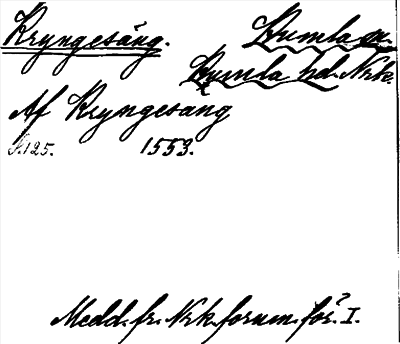 Kryngesäng. Kumla sn.
Kumla hd. Nrke.
Af Kryngesang
S.125. 1553.
Medd. fr. Nrk. fornm. för. I.